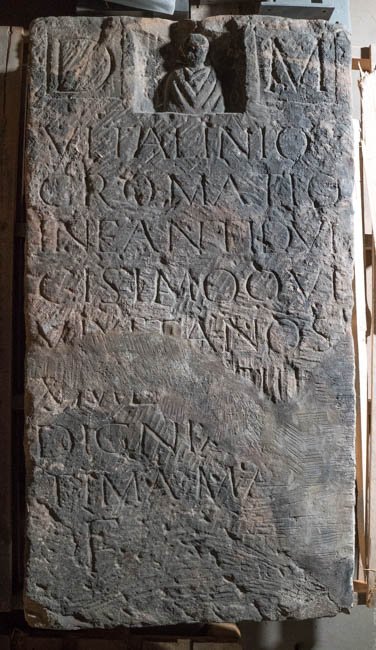 D M
VITALINIO
CROMATIO
INFANTI DVL
CISIMO QVI
VIXIT ANO S
DIGNI
TIMA MA
F